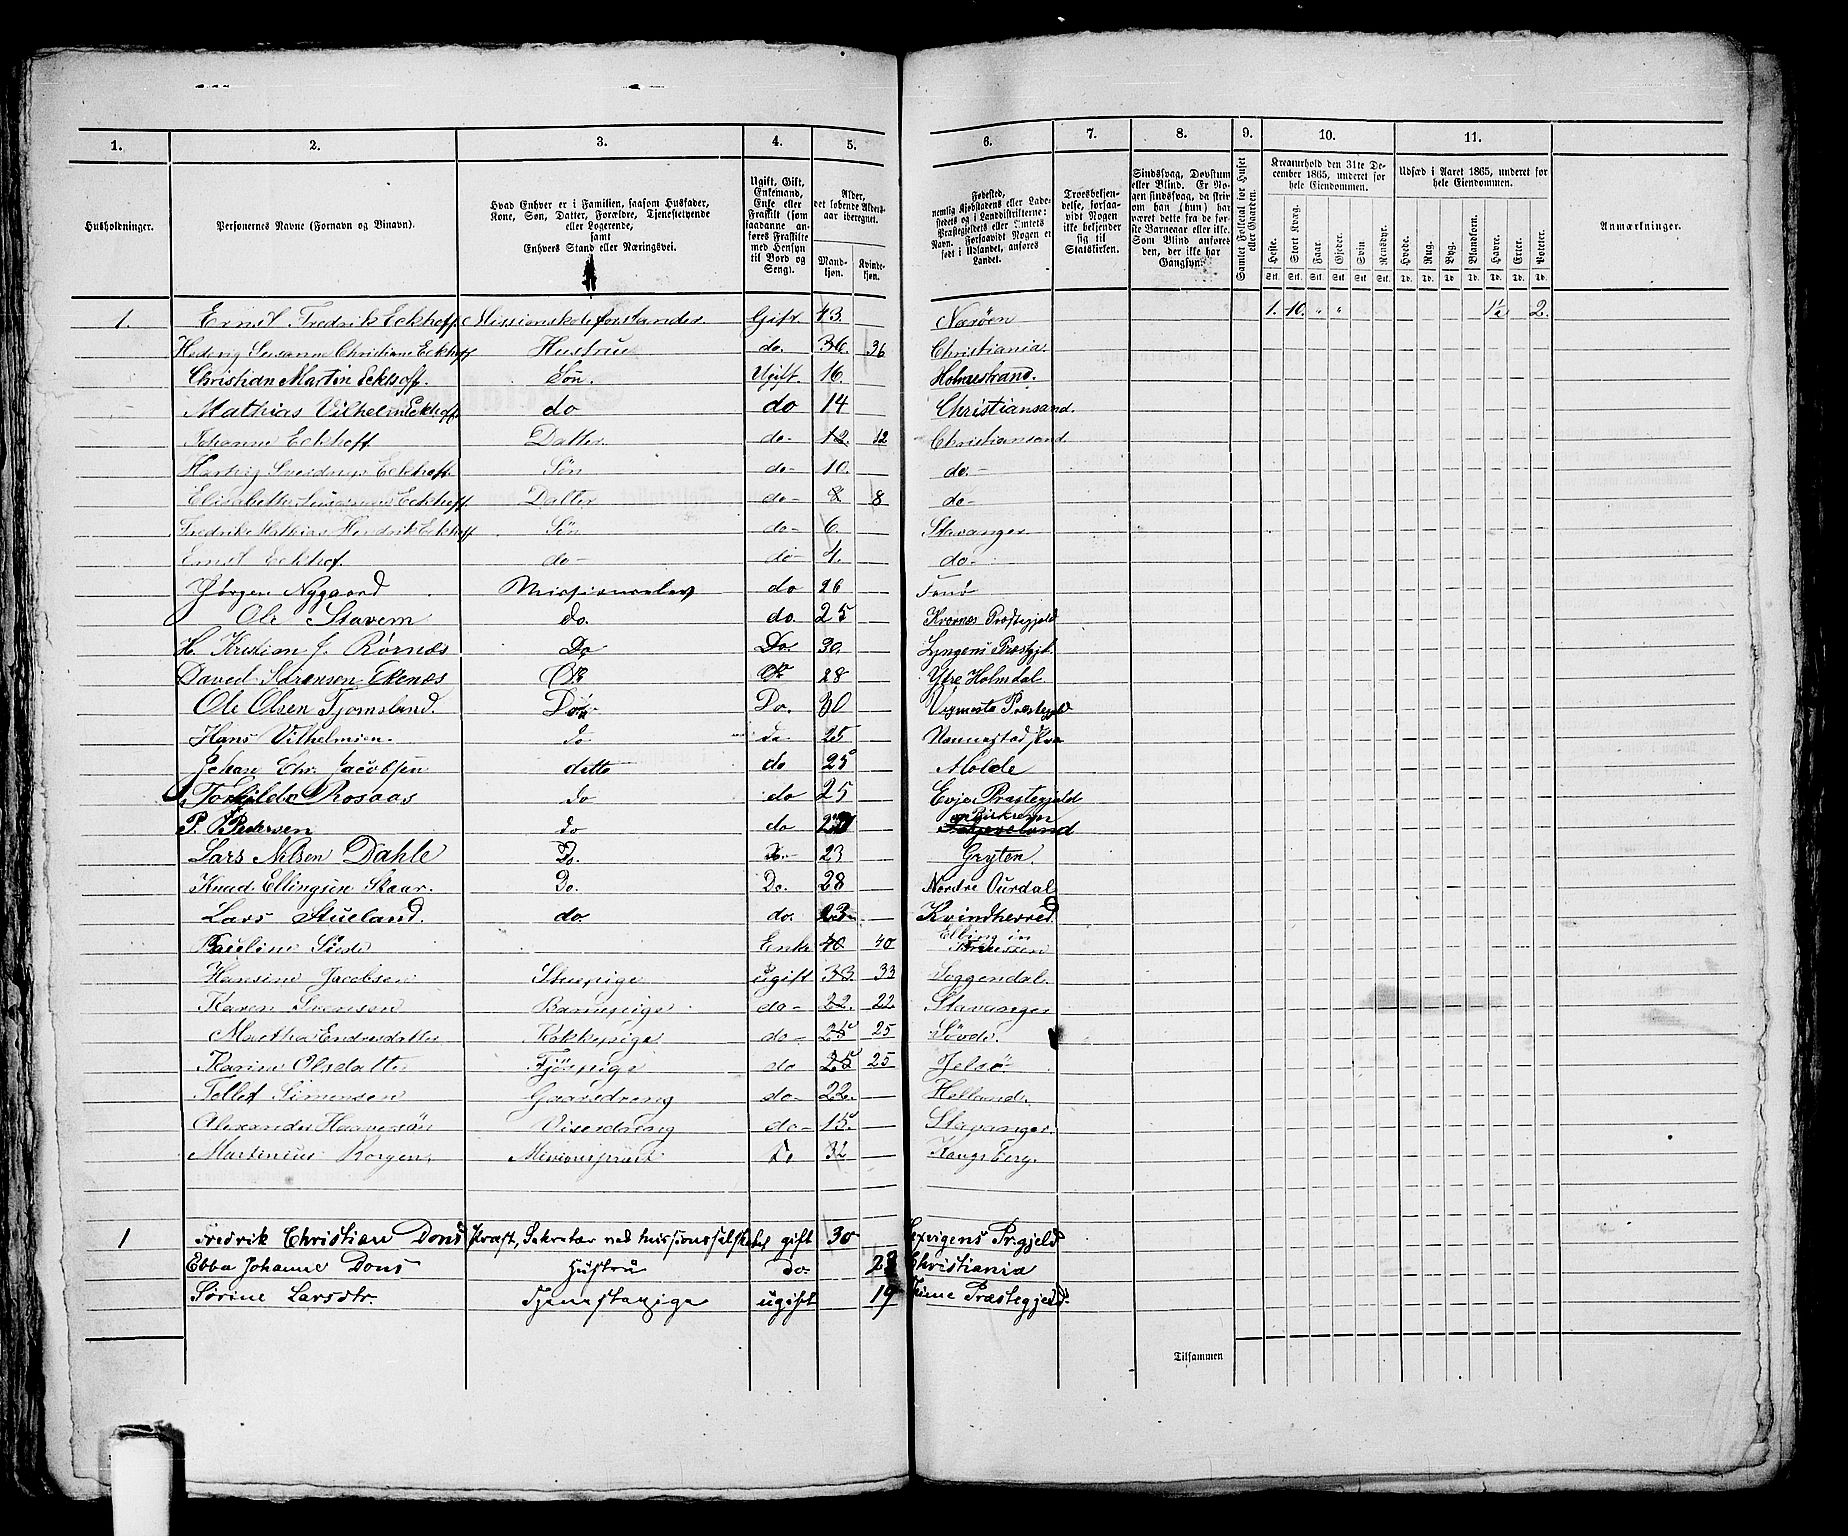 1. 2. 3. 4. 5. 6. 7. 8. 9. 10. 11.
Husholdninger.
Personernes Navne (Fornavn og Binavn).
Hvad Enhver er i Familien, saasom Husfader,
Kone, Søn, Datter, Forældre, Tjenestetyende
eller Logerende,
samt
Enhvers Stand eller Næringsvei.
Ugift, Gift,
Enkemand,
Enke eller
Fraskilt (som
saadanne an-
føres Fraskilte
med Hensyn
til Bord og
Seng).
Alder,
det løbende Alders-
aar iberegnet.
Mand-
kjøn.
Kvinde-
kjøn.
Fødested,
nemlig Kjøbstadens eller Lade-
stedets og i Landdistrikterne:
Præstegjeldets eller Amtets
Navn. Forsaavidt Nogen er
født i Udlandet, anføres
Landet.
Troesbekjen-
delse, forsaa-
vidt Nogen
ikke bekjender
sig til
Statskirken.
Sindssvag, Døvstum
eller Blind. Er No-
gen sindssvag, da skriv
om han (hun) har
været dette fra de før-
ste Barneaar eller ikke.
Som Blind anføres
den, der ikke har
Gangsyn.
Samlet Folketal for Huset
eller Gaarden.
Kreaturhold den 31te De-
cember 1865, underet for
hele Eiendommen.
Heste. Stort Kvæg. Faar. Gjeder. Svin Rensdyr.
Udsæd i Aaret 1865, underet for
hele Eiendommen.
Hvede. Rug. Byg. Blandkorn. Havre. Erter. Poteter.
Anmærkninger.
1 Ernst Fredrik Eckhoff. Missionskoleforstander. Gift. 43. Nærøen 1. 10. " " 1½ 2.
Hedevig Susanne Christiane Eckhoff Hustru do. 36. 36 Christiania.
Christian Martin Eckhoff. Søn. Ugift. 16. Holmestrand.
Mathias Vilhelm Eckhoff do do 14 Christiansand.
Johanne Eckhoff Datter do- 12. 12 Christiansand
Hartvig Sverdrup Eckhoff Søn do- 10. do.-
Elisabeth Eckhoff Datter do- 8 8 do-
Fredrik Mathias Hendrik Eckhoff Søn do- 6. Stavanger
Ernst Eckhof. do- do- 4. do-
Jørgen Nygaard Missionselev do 26
Ole Stavem do. do. 25 Præstegjeld
H. Kristian J. Rørnæs Do Do. 30. Lyngens Præstgjl.
David Sørensen Ekenæs Do Do 28 Ytre Holmdal
Ole Olsen Tjomsland. Do.- Do. 30 Vigmosta Præstegjeld
Hans Vilhelmsen. do do 25 Nannestad
Johan Chr. Jacobsen ditto do 25 Molde
Torkild Rosaas do do 25 Evje Præstegjeld
P. Pedersen do do Birkrem
Lars Nilsen Dahle Do. Do- 23 Gryten.
Knud Ellingsen Skaar. Do. Do. 28 Nordre Ourdal
Lars Stueland. do. do. 23 Kvindherred.
Enke 40 40 Elbing in Preussen
Hansine Jacobsen Stuepige ugift 33. 33 Soggendal.
Karen Svensen Barnepige do- 22. 22. Stavanger
Martha Endresdatter Kokkepige do- 25 25 Søvde.
Karine Olsdatter Fjøspige do 25 25 Jelsø
Tellef Simonsen Gaardsdreng do- 22. Helland.
Alexander Haaversøn Viserdreng do- 15. Stavanger.
Martinius Borgen. Missionsprest Do 32 Kongsberg.
1 Fredrik Christian Dons Præst, Sekretær ved Missionsselskabet gift 30 Lexvigens Pr.gjeld
Ebba Johanne Dons Hustru Do. Christiania
Sørine Larsdtr. Tjenestepige ugift 19 Time Præstegjeld.
Tilsammen